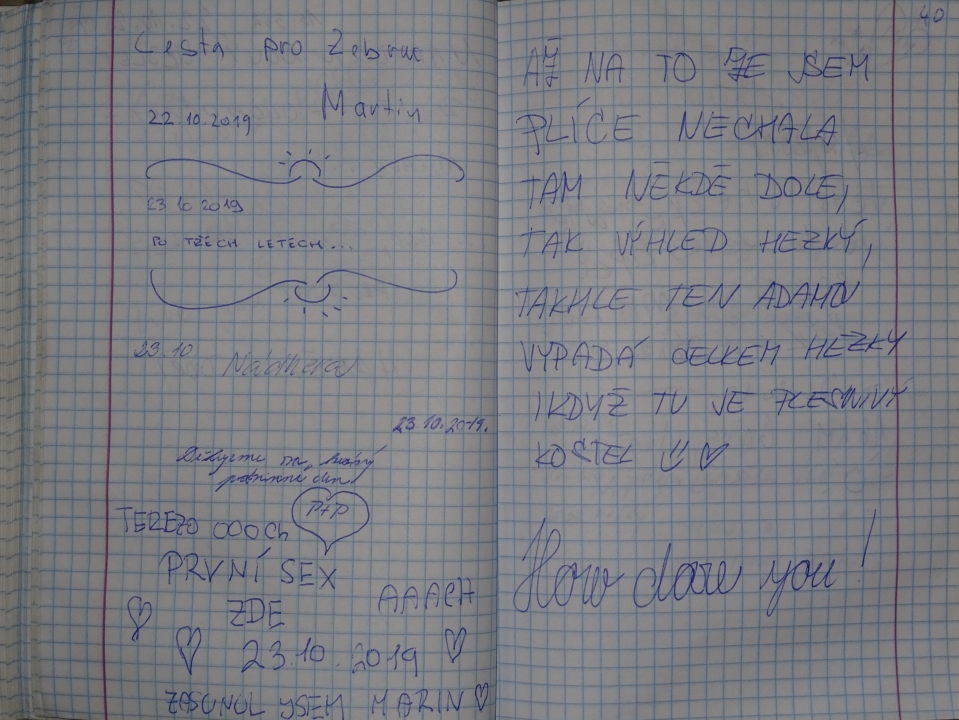 Cesta pro Zebrac
Martin
22 10.2019
23 10 2019
PO TŘECH LETECH...
23.10
Nádhera
23.10.2019.
Děkujeme za krásný
podzimní den
P+P
TEREZO OOOCh
PRVNÍ SEX
AAACH
ZDE
23.10.2019
ZASUNUL JSEM MARIN
40
AŽ NA TO ŽE JSEM
PLÍCE NECHALA
TAM NĚKDE DOLE,
TAK VÝHLED HEZKÝ,
TAKHLE TEN ADAMOV
VYPADÁ CELKEM HEZKY
IKDYŽ TU JE PLESNIVÝ
KOSTEL
How dare you!